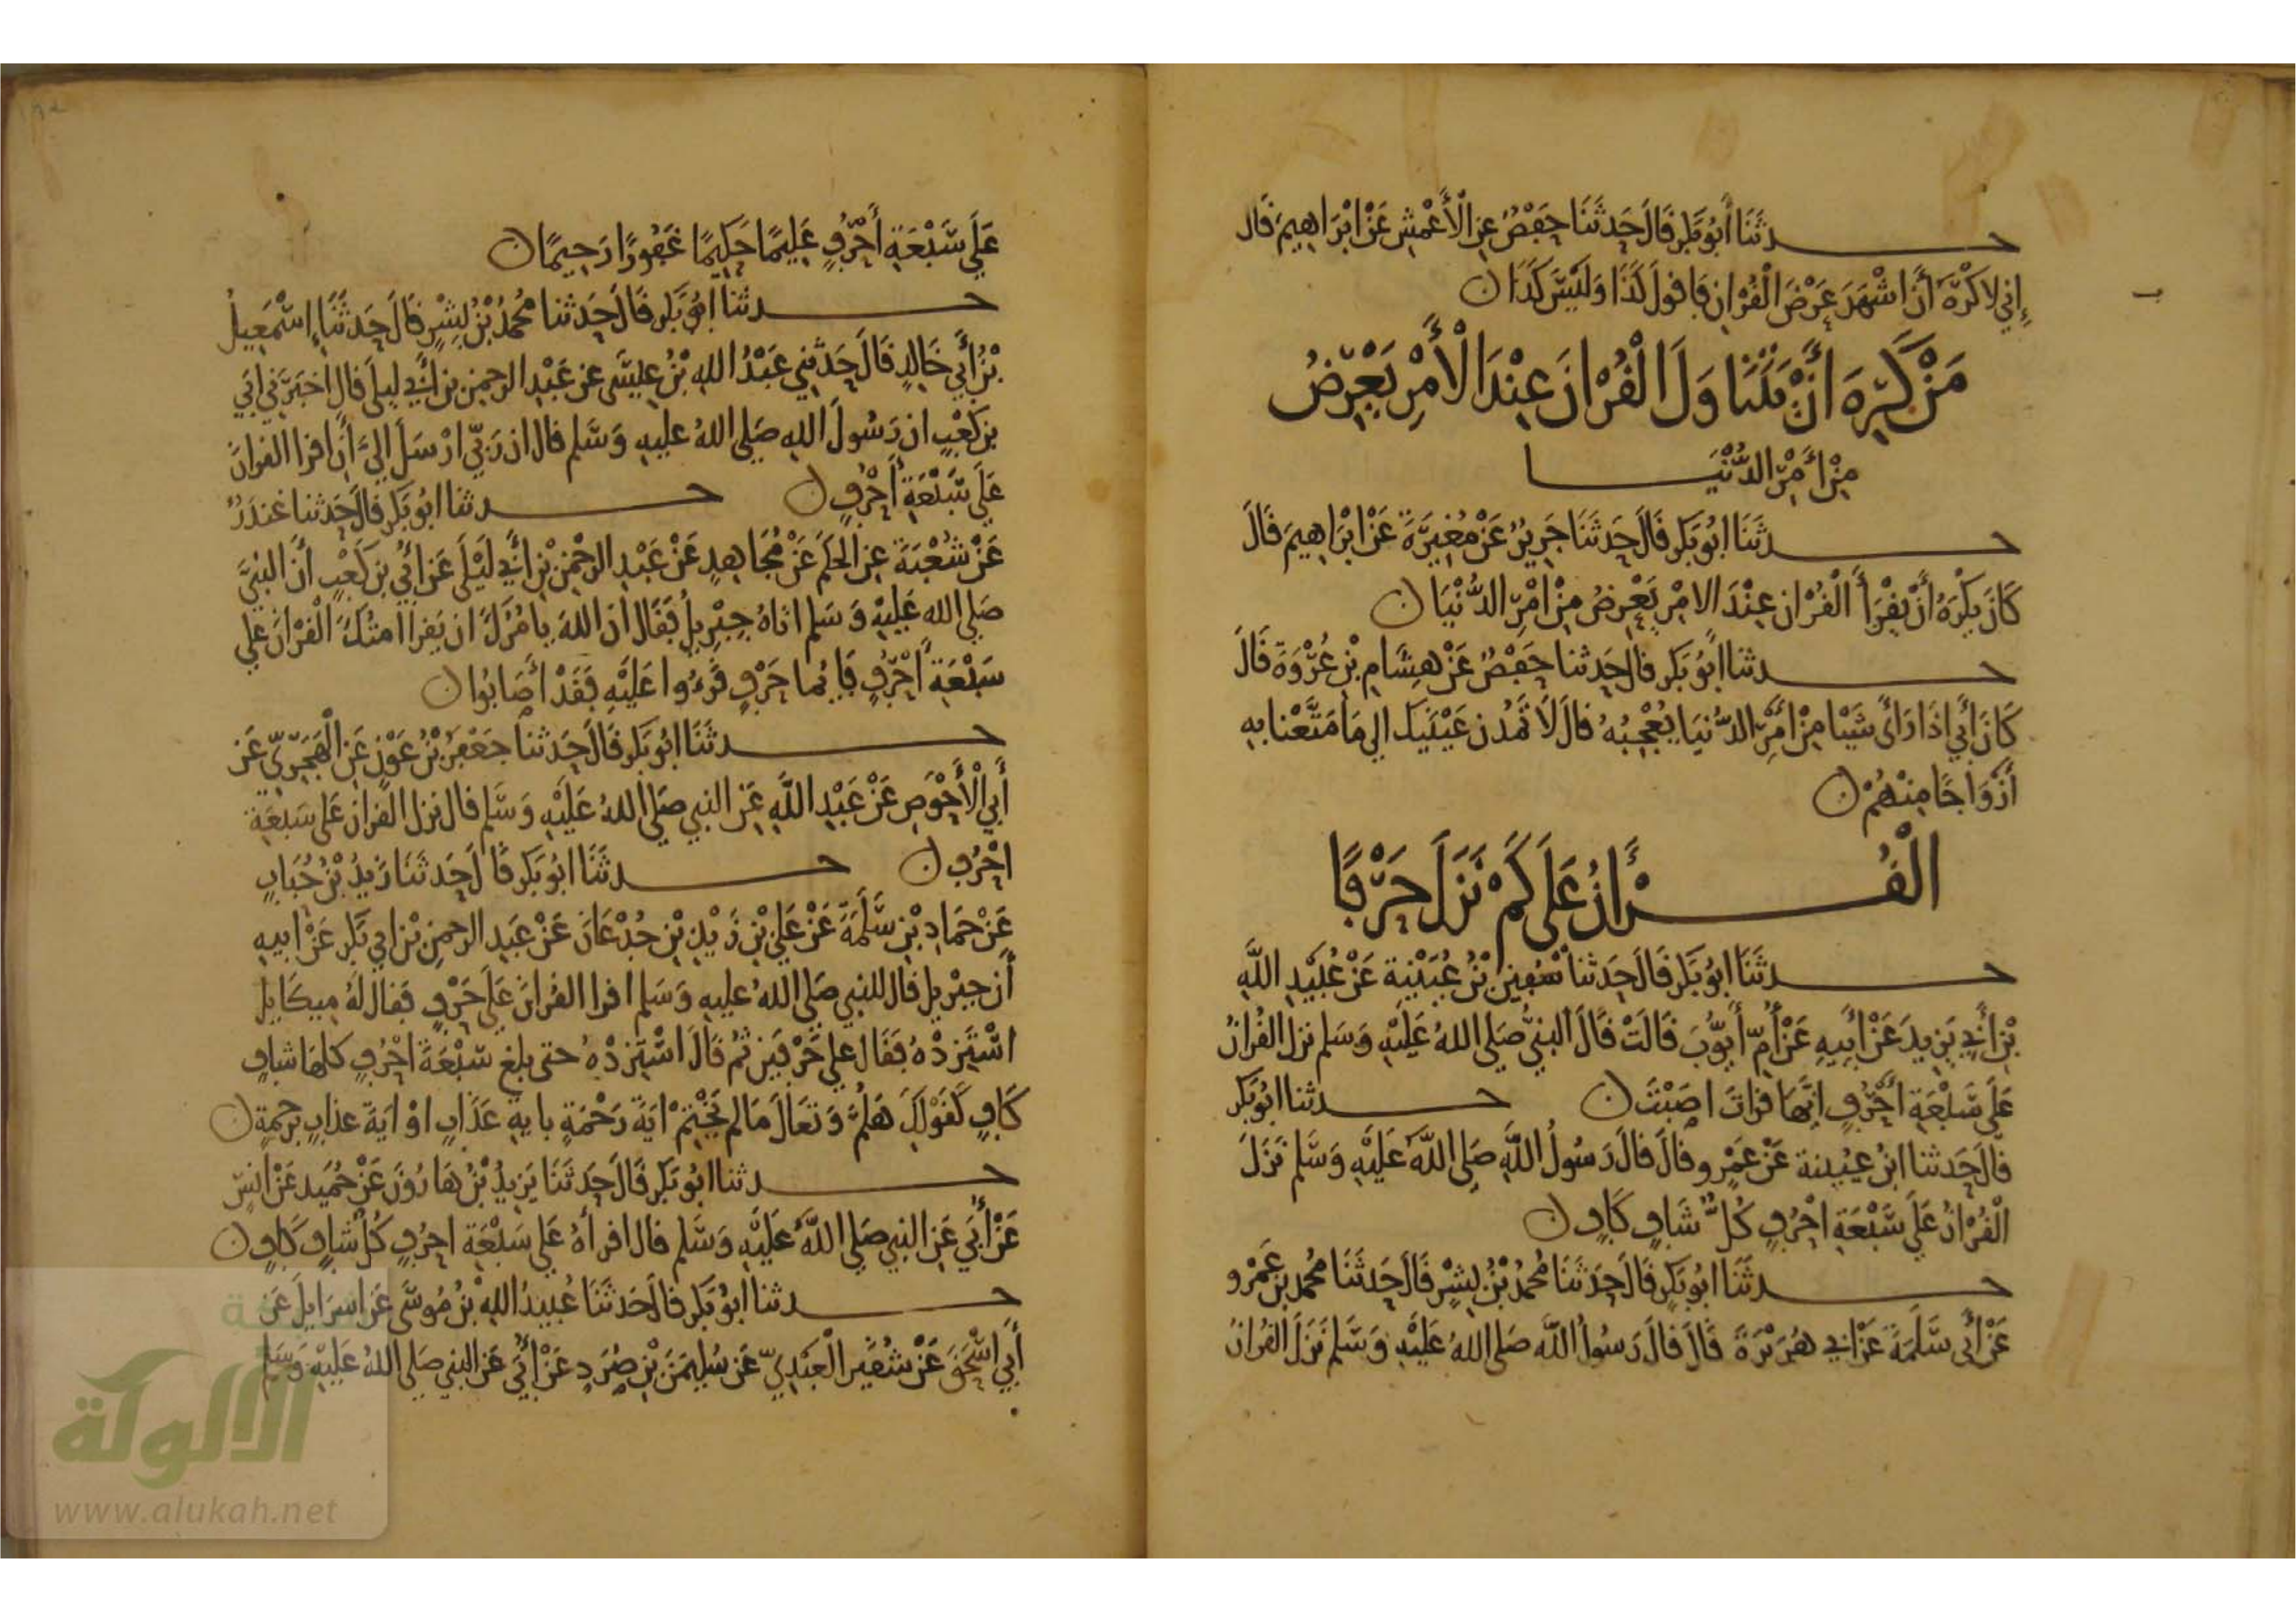 حدثنا أبو بكر قال حدثنا حفص عن الأعمش عن ابراهيم قال
إني لاكره أن اشهد عرض القران فاقول كذا وليس كذا ن
من كره أن يتناول القران عند الأمر يعرض
من أمر الدنيا
حدثنا ابو بكر قال حدثنا جرير عن مغيرة عن ابراهيم قال
كان يكره أن يقرأ القران عند الامر يعرض من امر الدنيا ن
حدثنا ابو بكر قال حدثنا حفص عن هشام بن عروة قال
كان أبي اذا رأى شيئا من أمر الدنيا يعجبه قال لا تمدن عينيك الي ما متعنا به
أزواجا منهم ن
القران على كم نزل حرفا
حدثنا ابو بكر قال حدثنا سفين بن عيينة عن عبيد الله
بن أبي يزيد عن أبيه عن أم أيوب قالت قال النبي صلى الله عليه وسلم نزل القران
على سبعة أحرف ايها قرات اصبت ن حدثنا ابو بكر
قال حدثنا ابن عيينة عن عمرو قال قال رسول الله صلى الله عليه وسلم نزل
القران على سبعة احرف كل شاف كاف ن
حدثنا ابو بكر قال حدثنا محمد بن بشر قال حدثنا محمد بن عمرو
عن أبي سلمة عن ابي هريرة قال قال رسول الله صلى الله عليه وسلم نزل القران
على سبعة أحرف عليما حكيما غفورا رحيما ن
حدثنا ابو بكر قال حدثنا محمد بن بشر قال حدثنا إسمعيل
بن أبي خالد قال حدثني عبد الله بن عيسى عن عبد الرحمن بن أبي ليلى قال اخبرني ابي
بن كعب ان رسول الله صلى الله عليه وسلم قال ان ربي ارسل الي أن اقرا القران
على سبعة أحرف ن حدثنا ابو بكر قال حدثنا غندر
عن شعبة عن الحكم عن مجاهد عن عبد الرحمن بن أبي ليلى عن أبي بن كعب أن النبي
صلى الله عليه وسلم اتاه جبريل فقال ان الله يامرك ان يقرا امتك القران على
سبعة احرف فايما حرف قرءوا عليه فقد أصابوا ن
حدثنا ابو بكر قال حدثنا جعفر بن عون عن الهجري عن
أبي الأحوص عن عبد الله عن النبي صلى الله عليه وسلم قال نزل القران على سبعة
احرف ن حدثنا ابو بكر قال حدثنا زيد بن حباب
عن حماد بن سلمة عن علي بن زيد بن جدعان عن عبد الرحمن بن ابي بكر عن ابيه
أن جبريل قال للنبي صلى الله عليه وسلم اقرا القران على حرف فقال له ميكايل
استزده فقال على حرفين ثم قال استزده حتى بلغ سبعة احرف كلها شاف
كاف كقولك هلم وتعال مالم يختم اية رحمة باية عذاب او اية عذاب برحمة ن
حدثنا ابو بكر قال حدثنا يزيد بن هارون عن حميد عن انس
عن أبي عن النبي صلى الله عليه وسلم قال اقرأه على سبعة احرف كل شاف كاف ن
حدثنا ابو بكر قال حدثنا عبيد الله بن موسى عن اسرايل عن
أبي اسحق عن سقير العبدي عن سليمن بن صرد عن أبي عن النبي صلى الله عليه وسلم
الألوكة
www.alukah.net